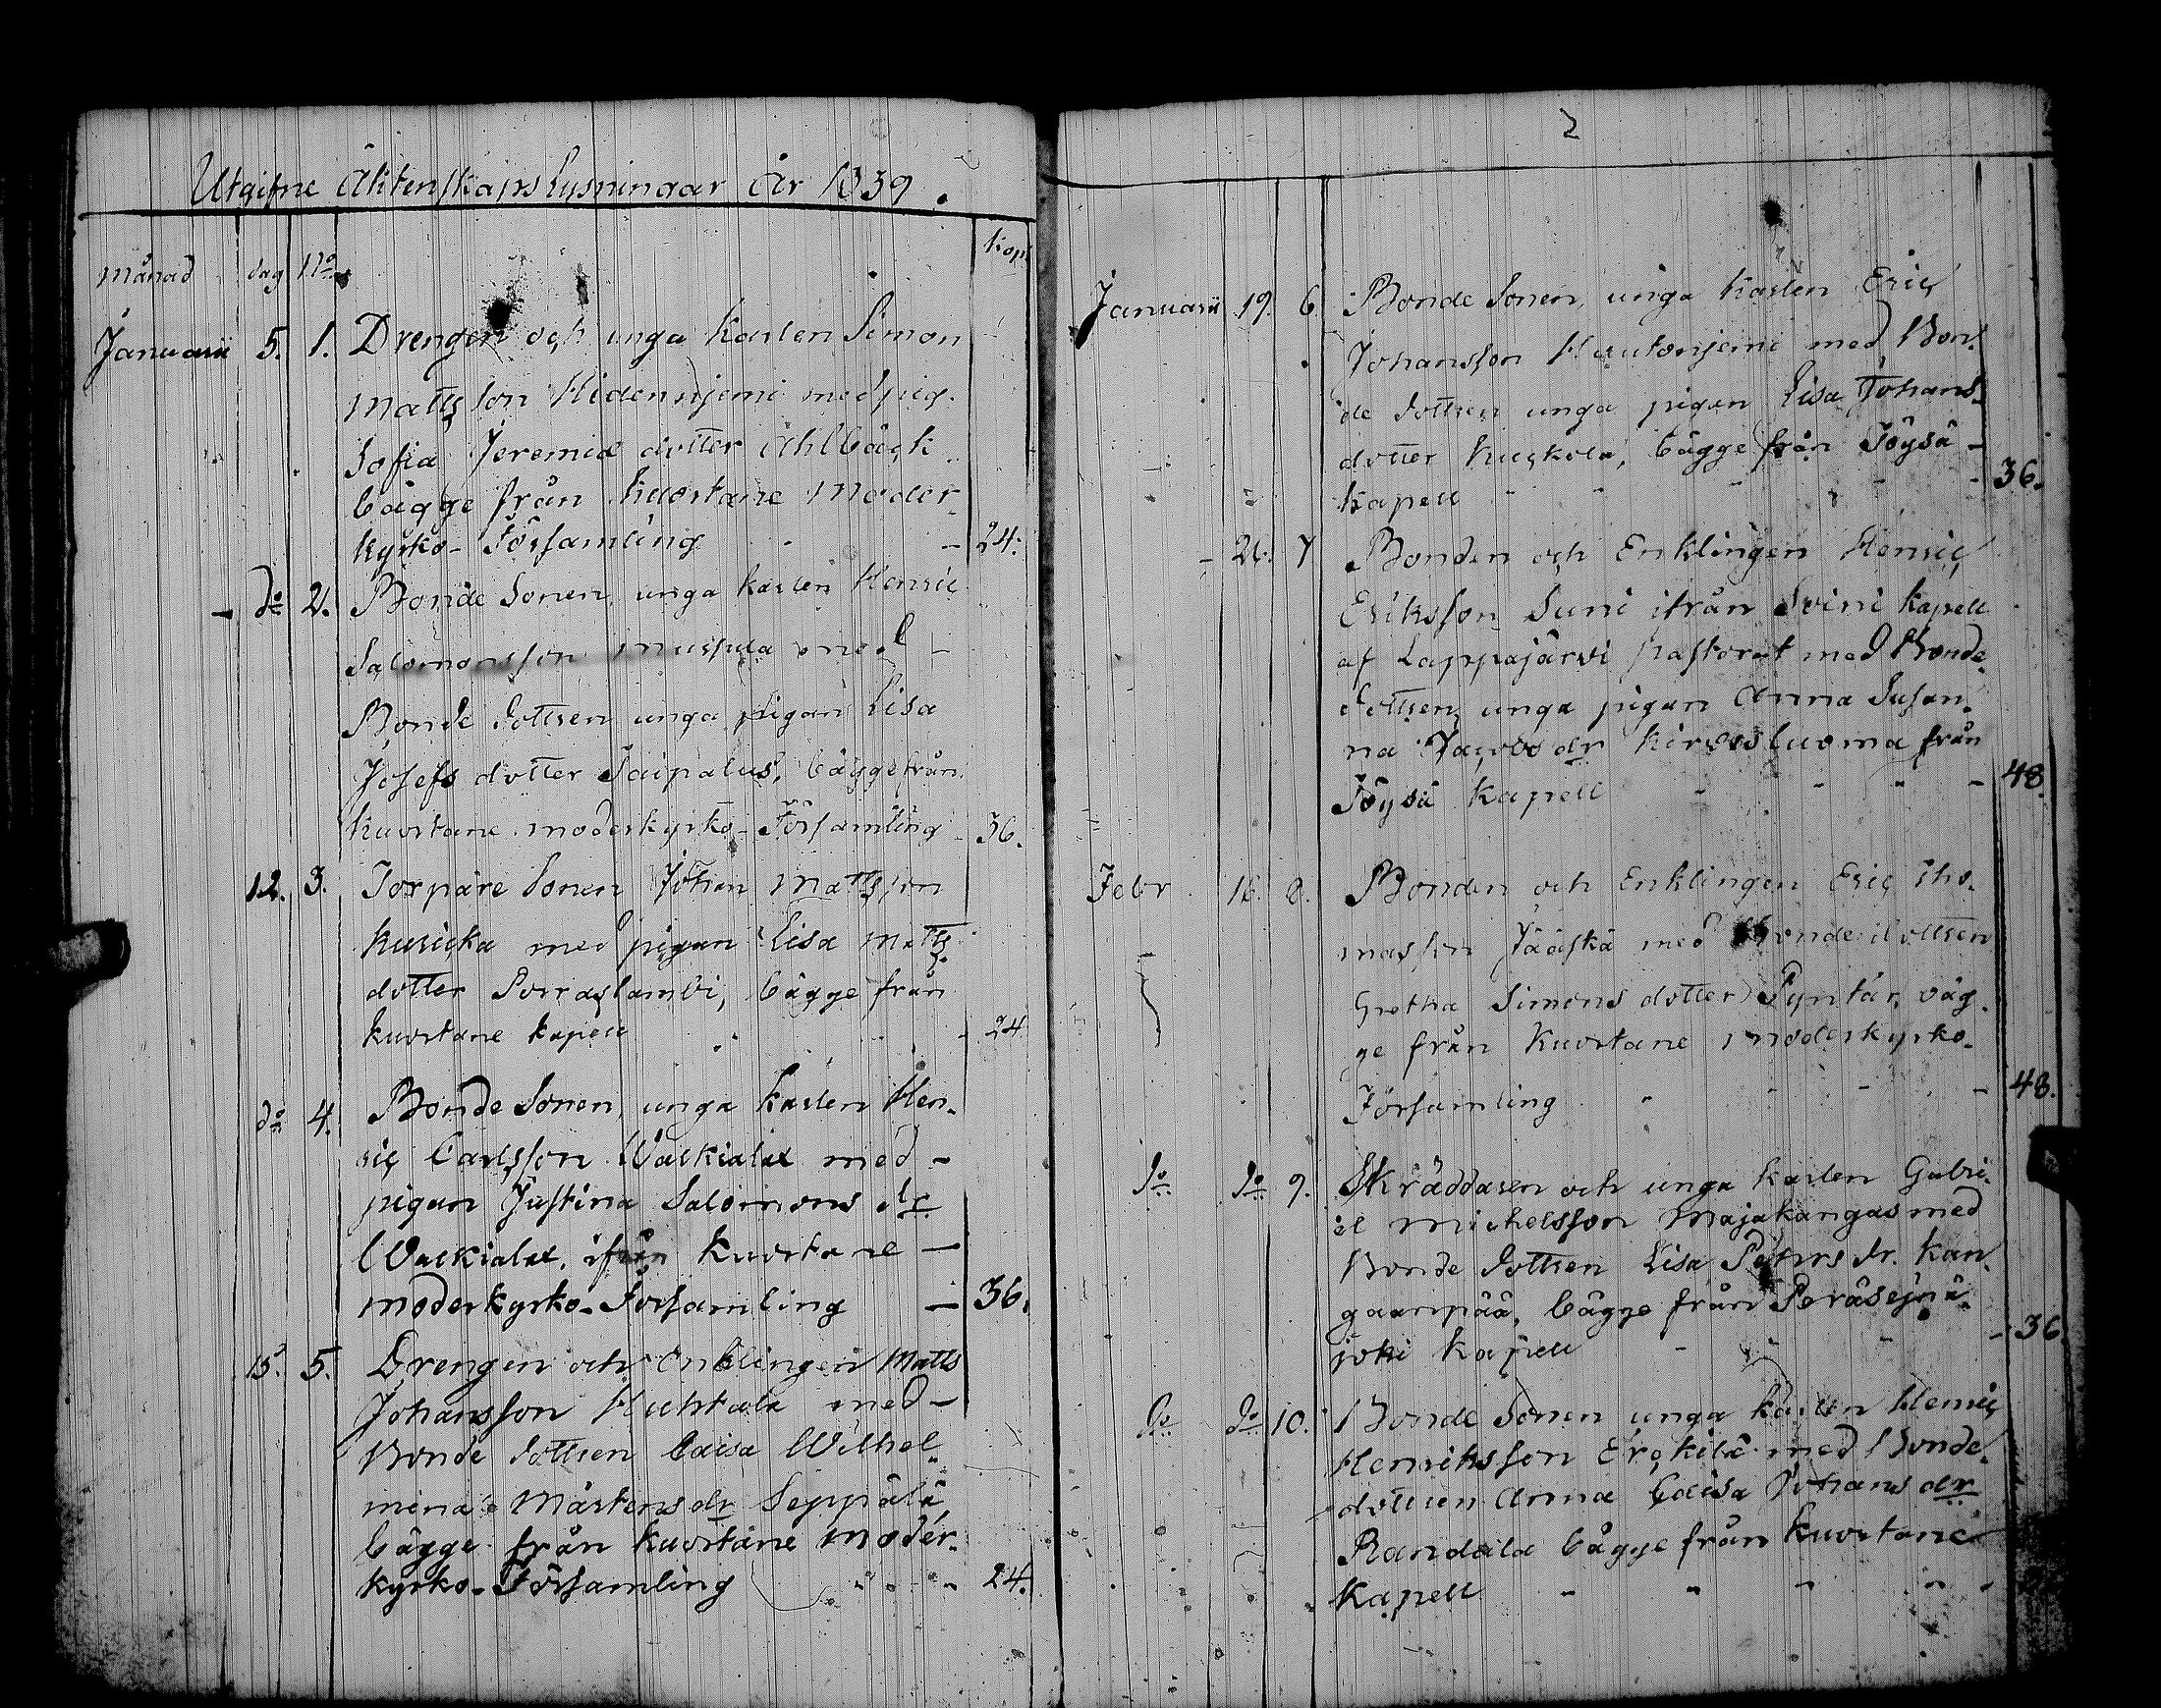 Utgifne Äktenskaps Lysningar År 1839.
Månad dag No Kop.
Januarii 5. 1. Drengen och unga Karlen Simon
Matts son Hidennjemi med pig.
Sofia Jeremiæ dotter Ahlbäck
bägge från Kuortane Moder
kyrko-Församling - 24.
- do 2. Bonde Sonen, unga Karlen Henric
Salomonsson med -
Bonde dottren unga pigan Lisa
Josefs dotter Saipalus, bägge från
Kuortane moderkyrko-Församling - 36.
12. 3. Torpare Sonen Johan Matts son
Kusicka med pigan Lisa Matts
dotter Porraslambi, bägge från
Kuortane kapell - 24
do 4. Bonde Sonen, unga Karlen Hen-
ric Carlsson Walkiala med -
pigan Justina Salomons dr
Walkiala, ifrån Kuortane -
moderkyrko-Församling - 36.
15. 5. Drengen och Enklingen Matts
Johansson Huhtala med -
Bonde dottren Caisa Wilhel-
mina Mårtens dr Seppälä
bägge från Kuortane Moder-
kyrko-Församling - 24.
2
Januarii 19. 6. Bonde Sonen, unga Karlen Eric
Johansson Hautonjemi med Bon-
de dottren unga pigan Lisa Johans-
dotter Kuckola, bägge från Töysä -
Kapell - 36.
- 21. 7 Bonden och Enklingen Henric
Eriksson Suni ifrån Soini Kapell
af Lappajärvi pastorat med Bonde-
dottren, unga pigan Anna Susan-
na Jacobs dr Hirvisluoma från
Töysä Kapell - 48.
Febr 16. 8. Bonden och Enklingen Eric Tho-
masson Jääskä med Bonde dottren
Gretha Simons dotter Pyntär, bäg-
ge från Kuortane moderkyrko-
Församling - 48.
do do 9. Skräddaren och unga Karlen Gabri-
el Michelsson Majakangas med
Bonde dottren Lisa Peters dr. Kan-
gaanpää, bägge från Peräsejnä-
joki Kapell - 36.
do do 10. Bonde Sonen unga Karlen Henric
Henriksson Erckilä med Bonde-
dottren Anna Caisa Johans dr
Randala bägge från Kuortane
Kapell -